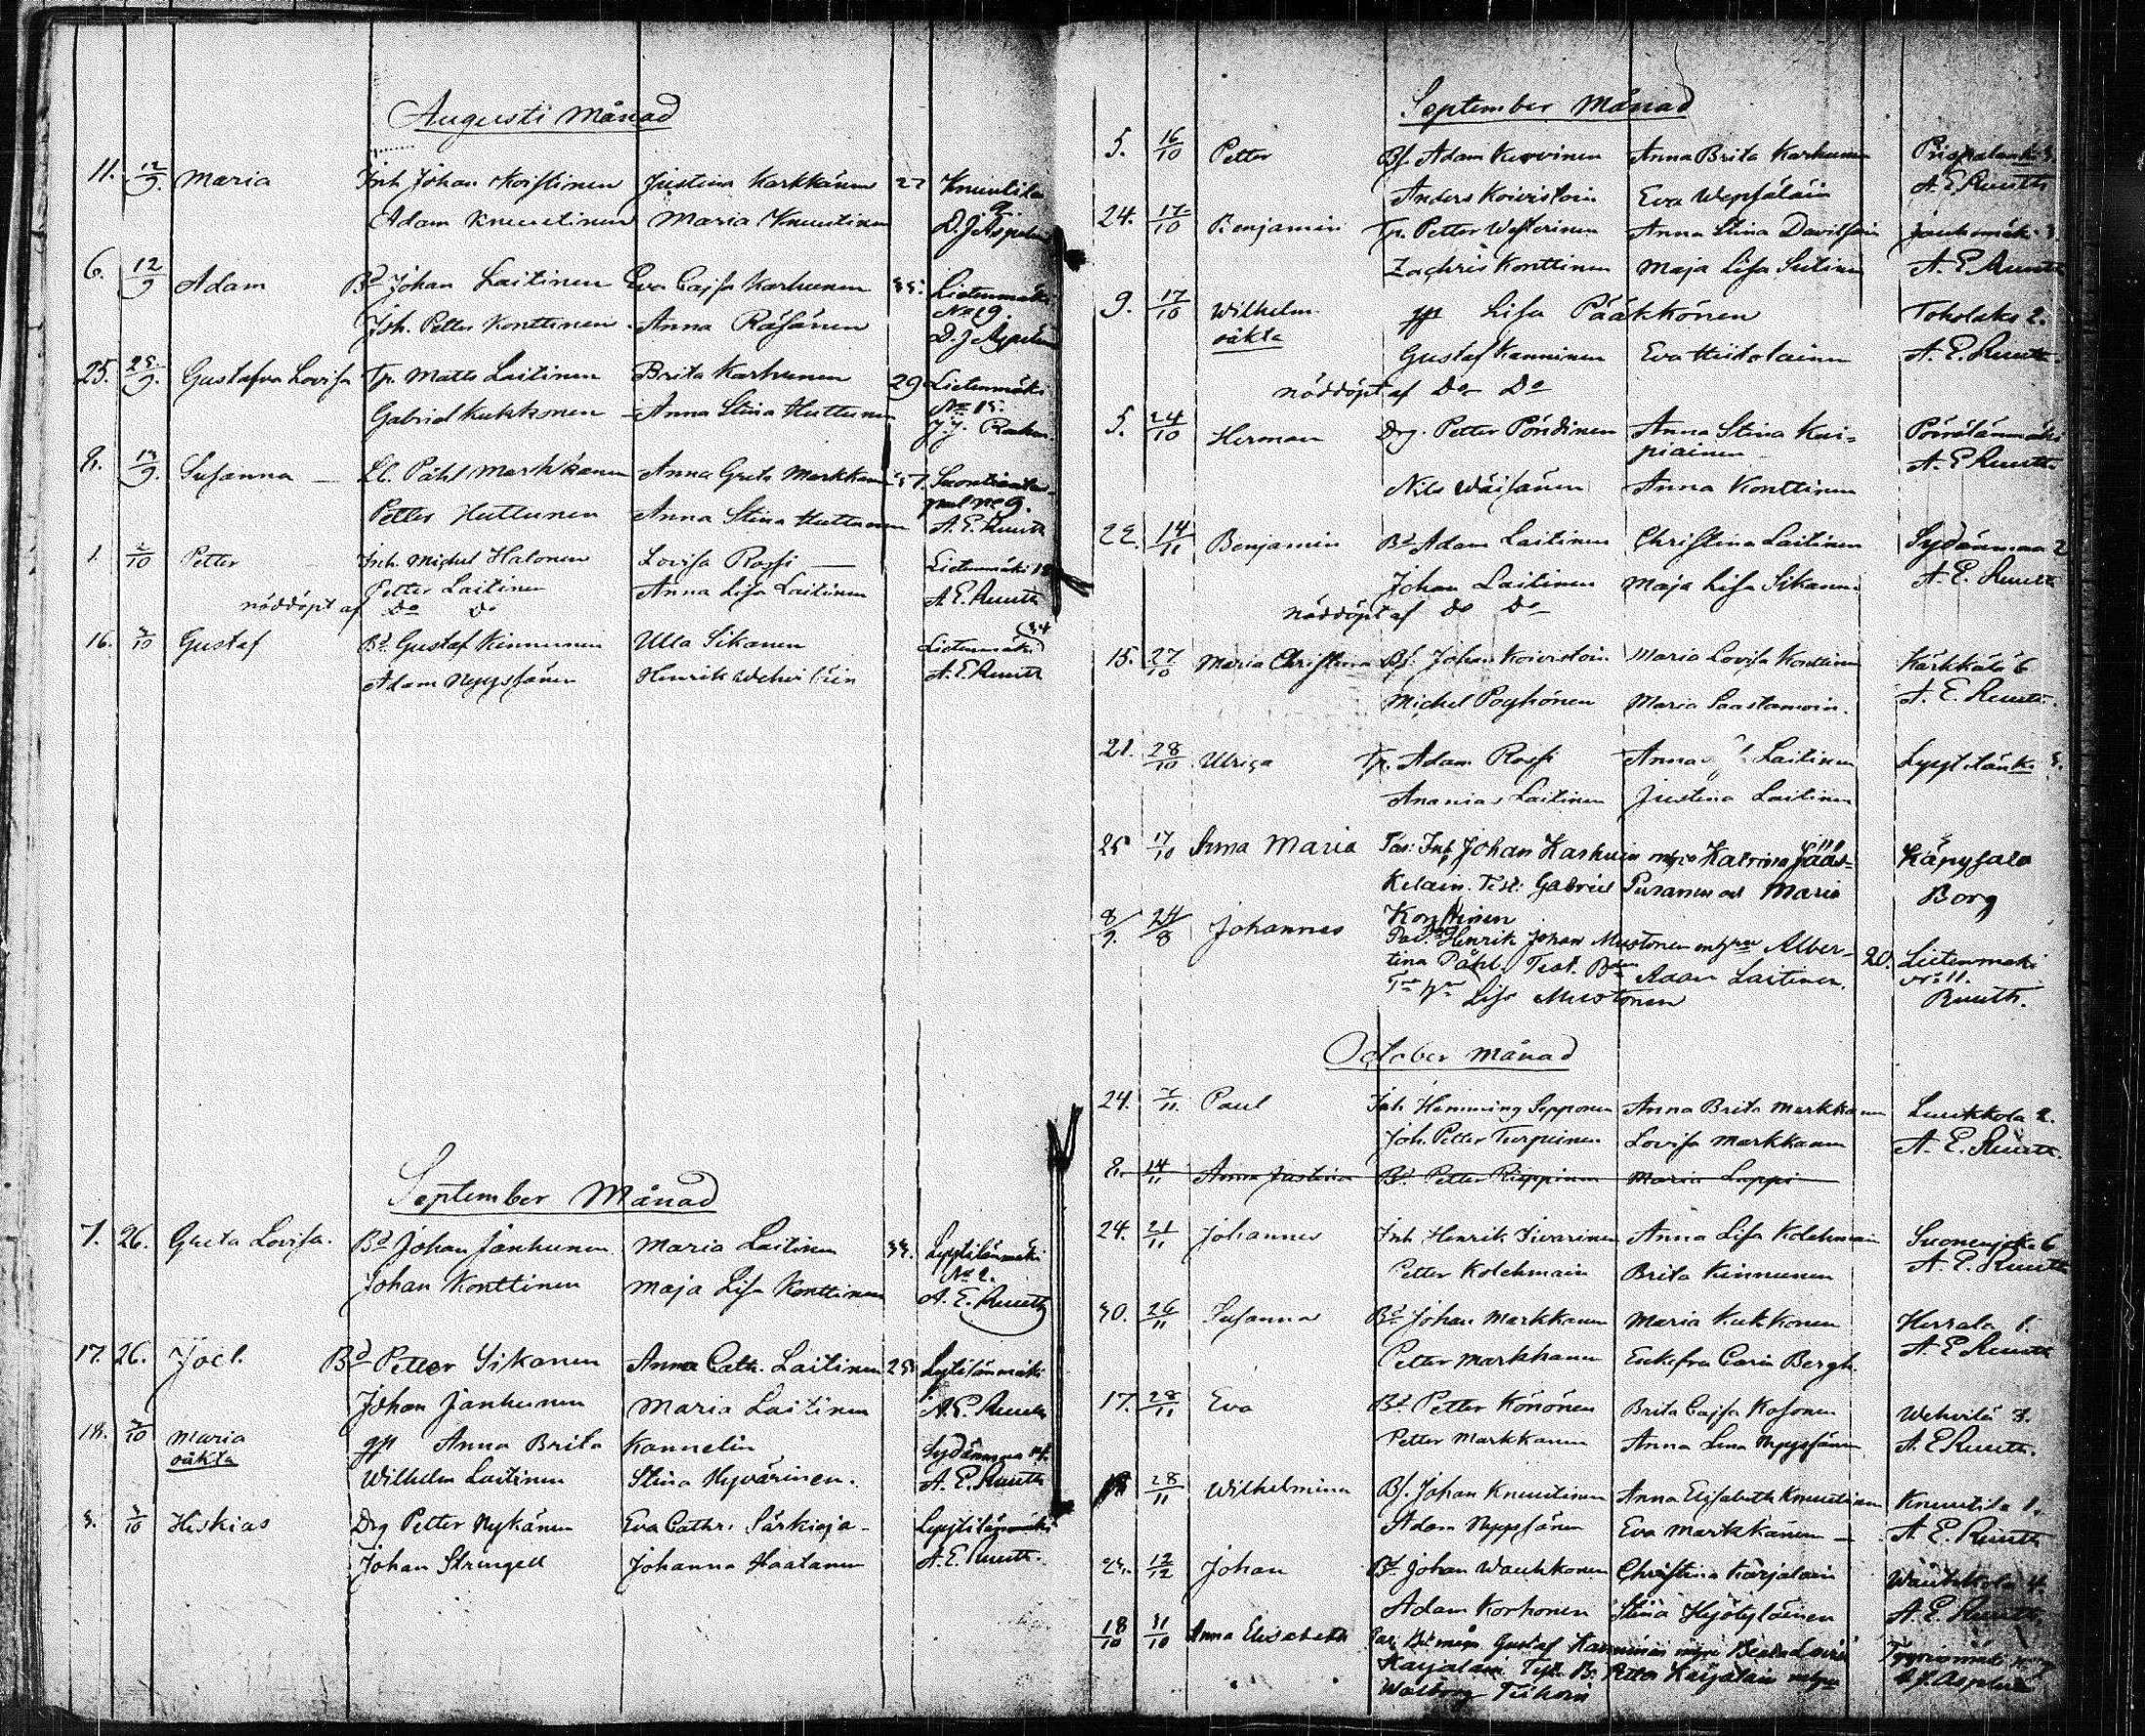 Augusti Månad
11. 12/9. Maria Inh Johan Koistinen Justina Karkkänen 27 Knuutila
Adam Knuutinen Maria Knuutinen 9. D. J. Aspelun
6. 12/9 Adam Bd Johan Laitinen Eva Cajsa Karhunen 35. Lietenmäki
Joh. Petter Konttinen Anna Räsänen No 19. D. J. Aspelun
25. 25/9. Gustafva Lovisa Tp. Matts Laitinen Brita Karhunen 29 Lietenmäki
Gabriel Kukkonen Anna Stina Huttunen No 15.
8. 19/9. Susanna Ll. Påhl Markkanen Anna Greta Markkanen
Petter Huttunen Anna Stina Huttunen A. E. Ruuth
1. 2/10 Petter Inh. Michel Halonen Lovisa Rossi Lietenmäki
Petter Laitinen Anna Lisa Laitinen A. E. Ruuth
nöddöpt af Do Do
16. 3/10 Gustaf Bd Gustaf Kinnunen Ulla Sikanen Lietenmäki 34
Adam Nyyssänen Henrik Wehviläin A. E. Ruuth
September Månad
7. 26. Greta Lovisa. Bd Johan Jänhunen Maria Laitinen 33. Lyytilänmäki
Johan Konttinen Maja Lisa Konttinen No 2. A. E. Ruuth
17. 26. Joel. Bd Petter Sikanen Anna Cath. Laitinen 25 Lytilänmäki
Johan Jänhunen Maria Laitinen A. E. Ruuth
18. 3/10 Maria gp Anna Brita Kannelin Sydänmaa
oäkta Wilhelm Laitinen Stina Hyvärinen. A. E. Ruuth
3. 3/10 Hiskias Drg Petter Nykänen Eva Cathr. Särkioja Lyytilänmäki
Johan Strungell Johanna Haatanen A. E. Ruuth.
September Månad
5. 16/10 Petter Bf. Adam Kurvinen Anna Brita Karhunen
Anders Koivistoin Eva Wepsäläin A. E. Ruuth
24. 17/10 Benjamin Tp. Petter Westerinen Anna Stina Davidsain Jauhomäki 3.
Zachris Konttinen Maja Lisa Sutinen A. E. Ruuth
9. 17/10 Wilhelm gp Lisa Pääkkönen Toholaks 2.
oäkta Gustaf Kanninen Eva Hiitolainen A. E. Ruuth.
nöddöpt af Do Do
5. 24/10 Herman Drg. Petter Pöndinen Anna Stina Kai= Pöreälänmäki
piainen A. E. Ruuth
Nils Wäisänen Anna Konttinen
22. 14/11 Benjamin Bd Adam Laitinen Christina Laitinen Sydänmaa 2
Johan Laitinen Maja Lisa Sikanen A. E. Ruuth
nöddöpt af Do Do
15. 27/10 Maria Christina Bf. Johan Koivistoin Maria Lovisa Konttinen Kärkkälä 6
Michel Poyhönen Maria Saastamoin. A. E. Ruuth.
21. 28/10 Ulrica Tp. Adam Rossi Anna Laitinen
Ananias Laitinen Justina Laitinen
25 17/10 Anna Maria Par: Inh Johan Karhuin Katrina Jääs= Käpysalo
kelain. Test: Gabriel Puranen och Maria Borg
Konttinen
8/9. 24/8 Johannes Par. Henrik Johan Mustonen Alber= 20. Lietenmäki
tina Påhl. Test. Adam Laitinen. No 11.
Lisa Mustonen Ruuth.
October Månad
24. 7/11. Paul Inh Hemming Sepponen Anna Brita Markkanen Luukkola 2.
Joh. Petter Turpeinen Lovisa Markkanen A. E. Ruuth.
8. 14/11 Anna Justina Bd. Petter Rieppinen Maria Lappi
24. 21/11 Johannes Inh Henrik Iivarinen Anna Lisa Kolehmain Suonenjoki 6
Petter Kolehmain Brita Kinnunen A. E. Ruuth
30. 26/11 Susanna Bd Johan Markkanen Maria Kukkonen Herrala 1.
Petter Markkanen Enkefra Carin Bergh. A. E. Ruuth
17. 28/11 Eva Bd Petter Könönen Brita Cajsa Kosonen Wehvilä 3.
Petter Markkanen Anna Lena Nyyssänen A. E. Ruuth.
28/11 Wilhelmina Bf. Johan Knuutinen Anna Elisabeth Knuutinen Knuutila 1.
Adam Nyyssänen Eva Markkanen A. E. Ruuth
12/12 Johan Bd Johan Wauhkonen Christina Karjalain Wauhkola 4.
Adam Korhonen Stina Hyötyläinen A. E. Ruuth.
18/10 31/10 Anna Elisabeth Par: Gustaf Kanninen Beata Lovisa
Karjalain Test. Petter Karjalain D. J. Aspelun
Walborg Tiihoin